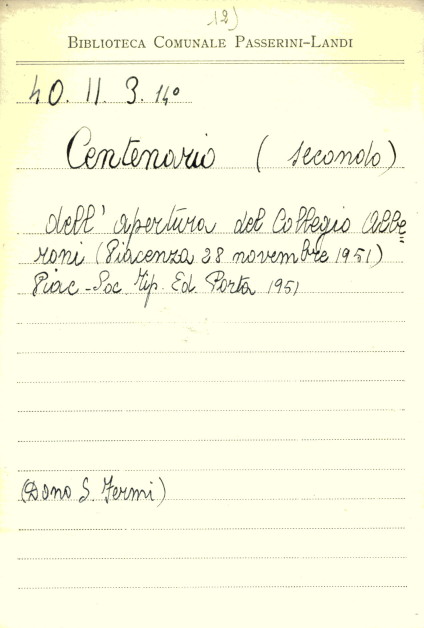 12)
BIBLIOTECA COMUNALE PASSERINI-LANDI
40. II. 3. 14°
Centenario (secondo)
dell' apertura del Collegio Albe=
roni (Piacenza 28 novembre 1951)
Piac - Soc. Tip. Ed. Porta 1951
(Dono S. Fermi)